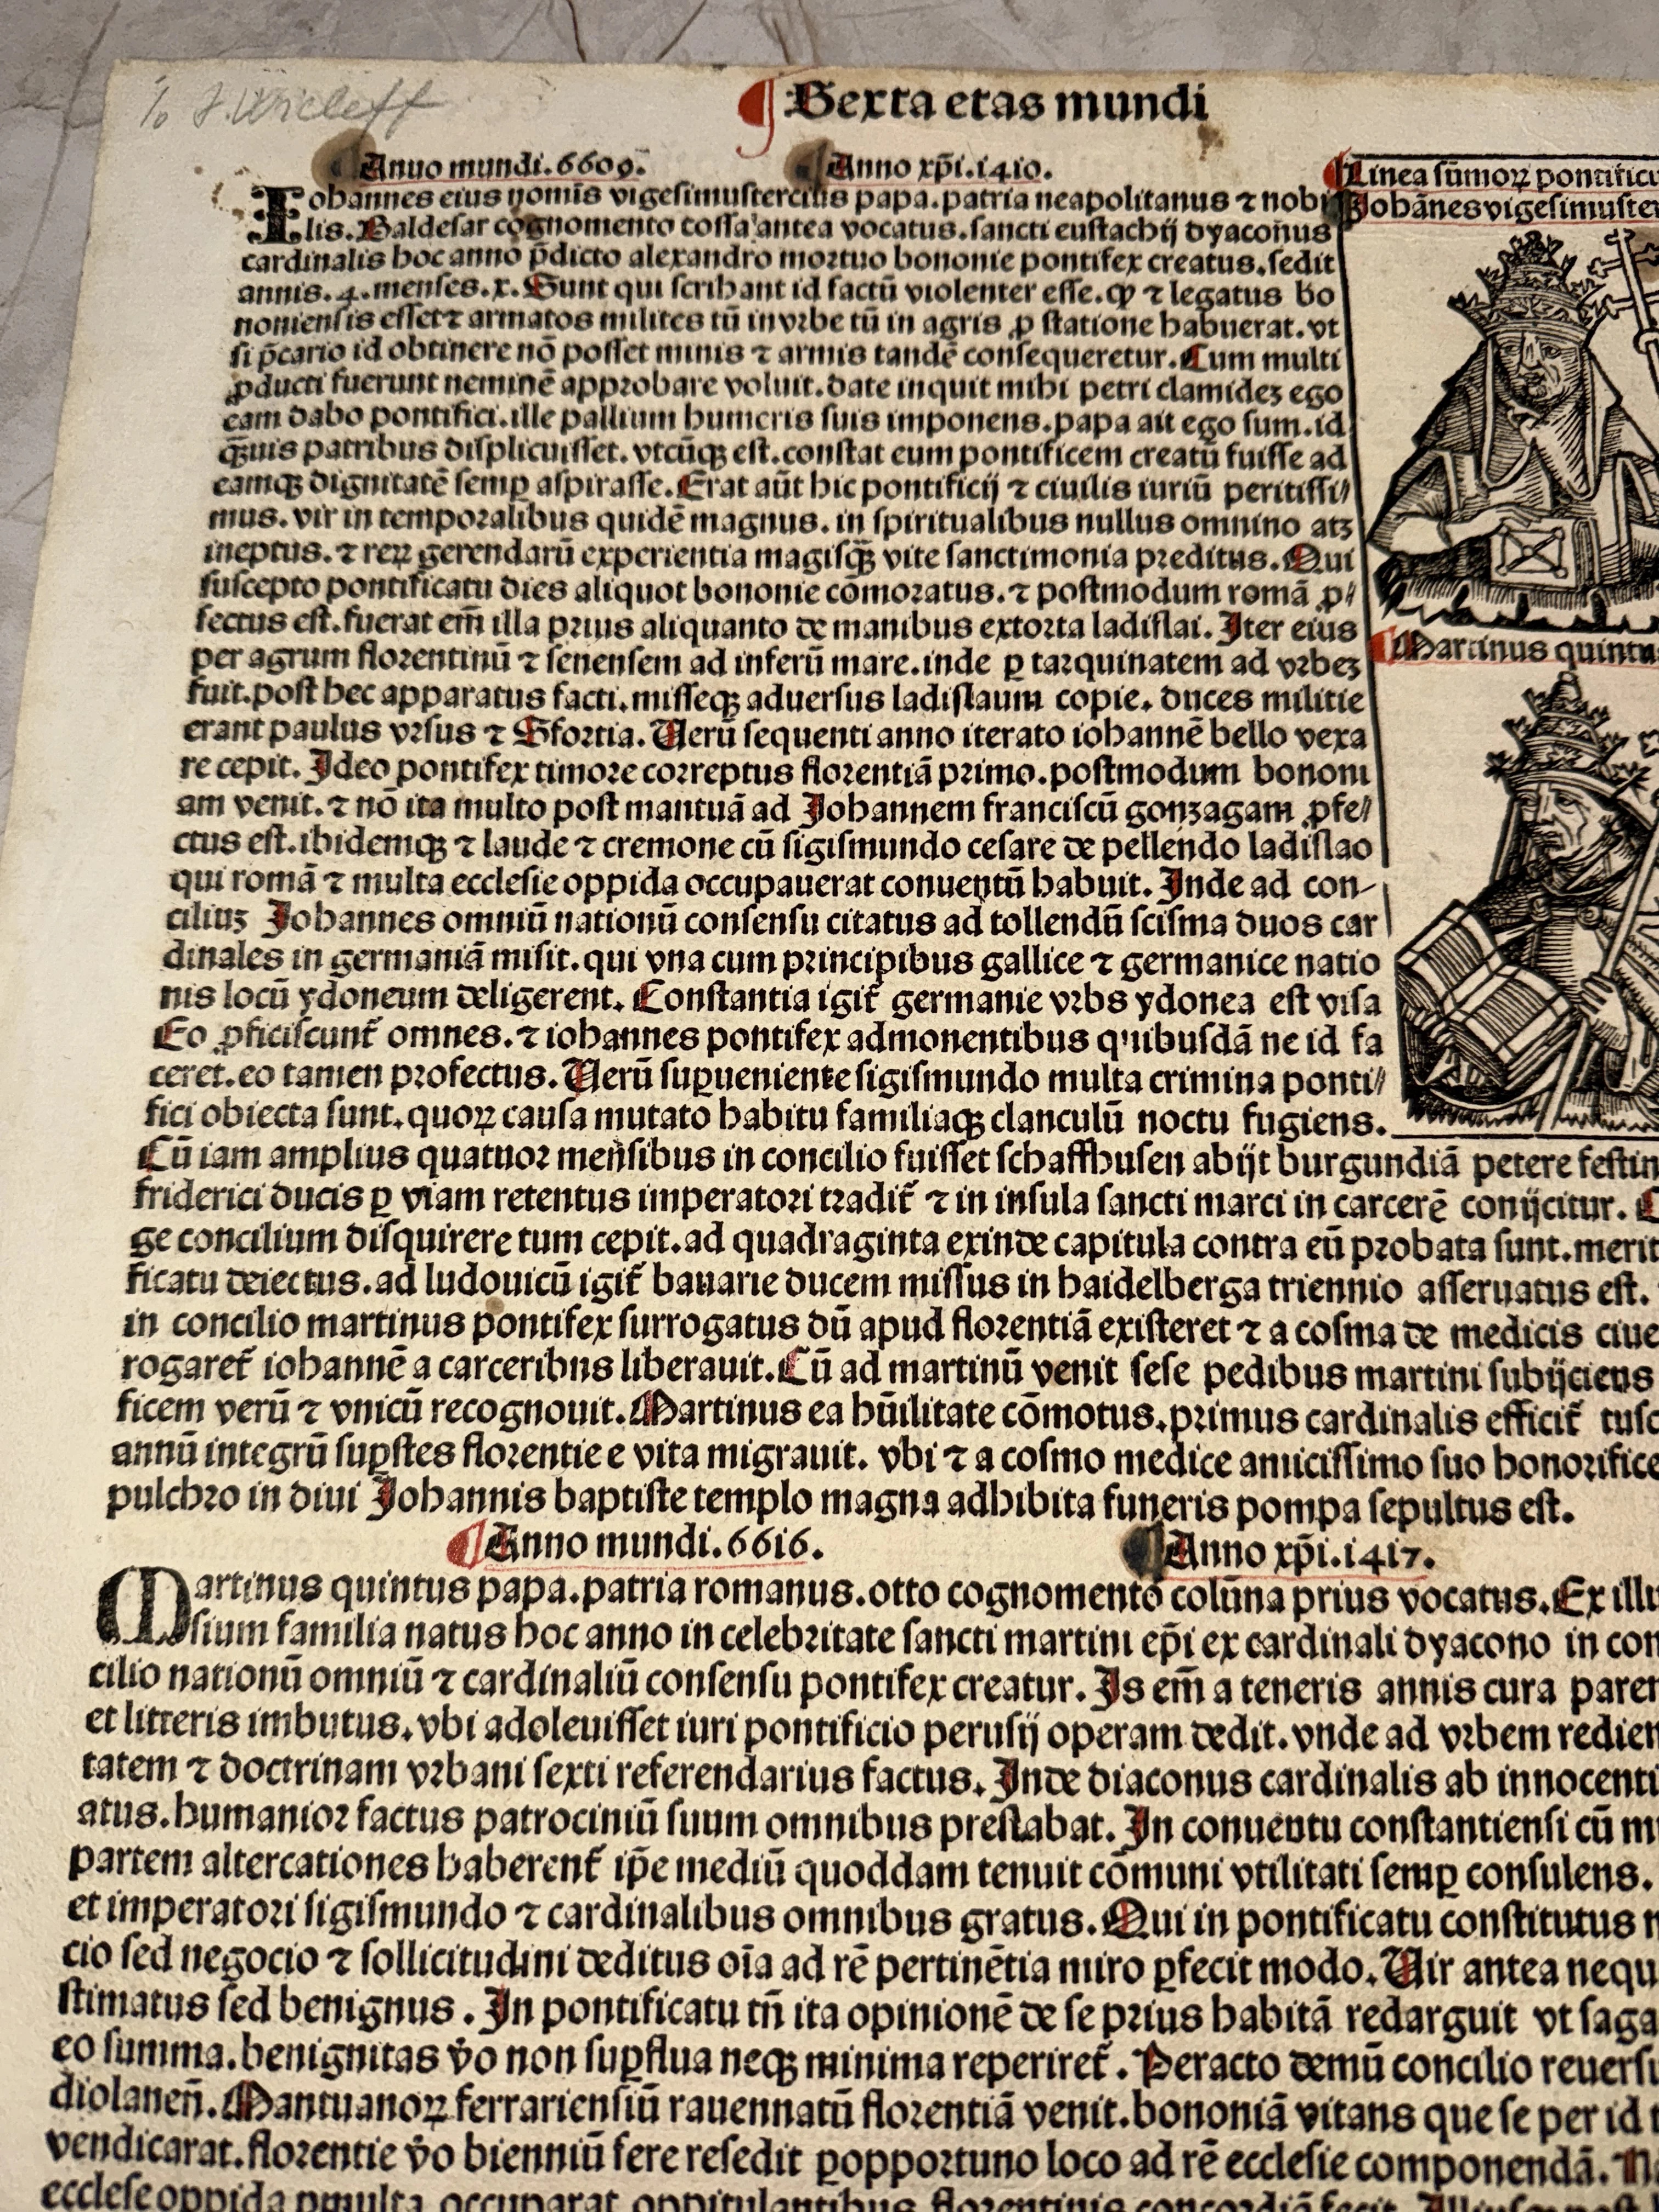 J. Wicleff
Sexta etas mundi
Anno mundi.6609. Anno xp̄i.1410.
Iohannes eius nomīs vigesimustercius papa.patria neapolitanus ⁊ nobi
lis.Baldesar cognomento cossa antea vocatus.sancti eustachij dyaconus
cardinalis hoc anno p̄dicto alexandro mortuo bononie pontifex creatus.sedit
annis.4.menses.x.Sunt qui scribant id factū violenter esse.ꝙ ⁊ legatus bo
noniensis esset⁊ armatos milites tū in vrbe tū in agris ꝓ statione habuerat.vt
si p̄cario id obtinere nō posset minis ⁊ armis tandē consequeretur.Cum multi
ꝓducti fuerunt neminē approbare voluit.date inquit mihi petri clamidez ego
eam dabo pontifici.ille pallium humeris suis imponens.papa ait ego sum.id
q̄uis patribus displicuisset.vtcūqꝫ est.constat eum pontificem creatū fuisse ad
eamqꝫ dignitatē semꝑ aspirasse.Erat aūt hic pontificij ⁊ ciuilis iuriū peritissi/
mus.vir in temporalibus quidē magnus.in spiritualibus nullus omnino atꝫ
ineptus.⁊ reꝝ gerendarū experientia magisq̄ꝫ vite sanctimonia preditus.Qui
suscepto pontificatu dies aliquot bononie cōmoratus.⁊ postmodum romā ꝓ/
fectus est.fuerat em̄ illa prius aliquanto de manibus extorta ladislai.Iter eius
per agrum florentinū ⁊ senensem ad inferū mare.inde ꝑ tarquinatem ad vrbeꝫ
fuit.post hec apparatus facti.misseqꝫ aduersus ladislaum copie.duces militie
erant paulus vrsus ⁊ Sfortia.Uerū sequenti anno iterato iohannē bello vexa
re cepit.Ideo pontifex timore correptus florentiā primo.postmodum bononi
am venit.⁊ nō ita multo post mantuā ad Iohannem franciscū gonzagam ꝓfe/
ctus est.ibidemqꝫ ⁊ laude ⁊ cremone cū sigismundo cesare de pellendo ladislao
qui romā ⁊ multa ecclesie oppida occupauerat conuentū habuit.Inde ad con-
ciliuꝫ Iohannes omniū nationū consensu citatus ad tollendū scisma duos car
dinales in germaniā misit.qui vna cum principibus gallice ⁊ germanice natio
nis locū ydoneum deligerent.Constantia igit̄ germanie vrbs ydonea est visa
Eo ꝓficiscunt̄ omnes.⁊ iohannes pontifex admonentibus quibusdā ne id fa
ceret.eo tamen profectus.Uerū suꝑueniente sigismundo multa crimina ponti/
fici obiecta sunt.quoꝝ causa mutato habitu familiaqꝫ clanculū noctu fugiens.
Cū iam amplius quatuor mensibus in concilio fuisset schaffhusen abijt burgundiā petere festin
friderici ducis ꝑ viam retentus imperatori tradit̄ ⁊ in insula sancti marci in carcerē conijcitur.
ge concilium disquirere tum cepit.ad quadraginta exinde capitula contra eū probata sunt.merit
ficatu deiectus.ad ludouicū igit̄ bauarie ducem missus in haidelberga triennio asseruatus est.
in concilio martinus pontifex surrogatus dū apud florentiā existeret ⁊ a cosma de medicis ciue
rogaret̄ iohannē a carceribns liberauit.Cū ad martinū venit sese pedibus martini subijciens
ficem verū ⁊ vnicū recognouit.Martinus ea hūilitate cōmotus.primus cardinalis efficit̄ tusc
annū integrū suꝑstes florentie e vita migrauit.vbi ⁊ a cosmo medice amicissimo suo honorifice
pulchro in diui Iohannis baptiste templo magna adhibita funeris pompa sepultus est.
Anno mundi.6616. Anno xp̄i.1417.
Martinus quintus papa.patria romanus.otto cognomento colūna prius vocatus.Ex illu
sium familia natus hoc anno in celebritate sancti martini ep̄i ex cardinali dyacono in con
cilio nationū omniū ⁊ cardinaliū consensu pontifex creatur.Is em̄ a teneris annis cura paren
et litteris imbutus.vbi adoleuisset iuri pontificio perusij operam dedit.vnde ad vrbem redien
tatem ⁊ doctrinam vrbani sexti referendarius factus.Inde diaconus cardinalis ab innocenti
atus.humanior factus patrociniū suum omnibus prestabat.In conuentu constantiensi cū mu
partem altercationes haberent̄ ip̄e mediū quoddam tenuit cōmuni vtilitati semꝑ consulens.
et imperatori sigismundo ⁊ cardinalibus omnibus gratus.Qui in pontificatu constitutus n
cio sed negocio ⁊ sollicitudini deditus oīa ad rē pertinētia miro ꝑfecit modo.Uir antea nequ
stimatus sed benignus.In pontificatu tn̄ ita opinionē de se prius habitā redarguit vt saga
eo summa.benignitas v̄o non suꝑflua neqꝫ minima reperiret̄.Peracto demū concilio reuersu
diolaneñ.Mantuanoꝝ ferrariensiū rauennatū florentiā venit.bononiā vitans que se per id t
vendicarat.florentie v̄o bienniū fere resedit ꝑopportuno loco ad rē ecclesie componendā.
ecclese oppida occuparat
Linea sūmoꝝ pontificu
Iohānes vigesimuster
Martinus quintu